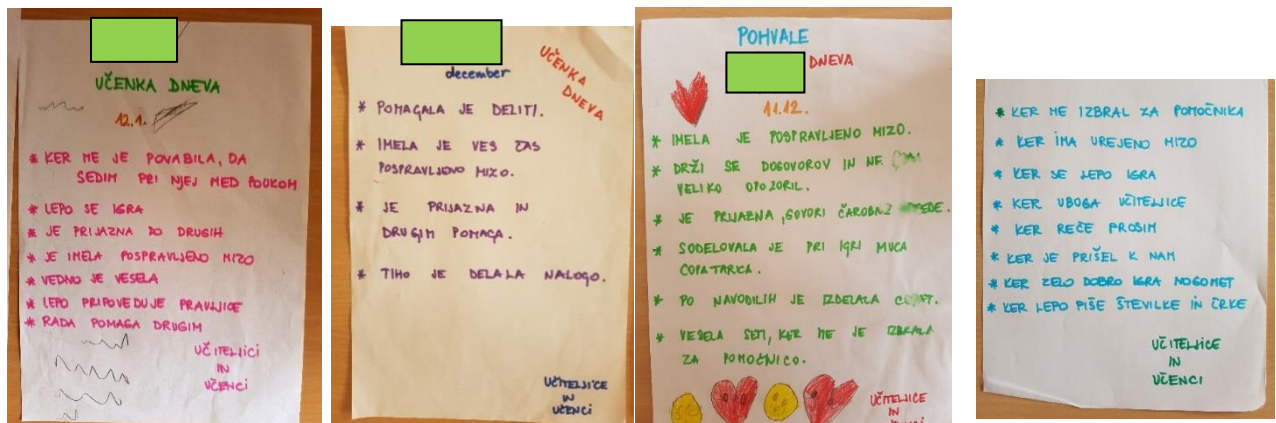 UČENKA DNEVA
12.1.
* KER ME JE POVABILA, DA
SEDIM PRI NJEJ MED POUKOM
* LEPO SE IGRA
* JE PRIJAZNA DO DRUGIH
* JE IMELA POSPRAVLJENO MIZO
* VEDNO JE VESELA
* LEPO PRIPOVEDUJE PRAVLJICE
* RADA POMAGA DRUGIM
UČITELJICI
IN
UČENCI
december
UČENKA
DNEVA
* POMAGALA JE DELITI.
* IMELA JE VES ČAS
POSPRAVLJENO MIZO.
* JE PRIJAZNA IN
DRUGIM POMAGA.
* TIHO JE DELALA NALOGO.
UČITELJICE
IN
UČENCI
POHVALE
DNEVA
11.12.
* IMELA JE POSPRAVLJENO MIZO.
* DRŽI SE DOGOVOROV IN NE
VELIKO OPOZORIL.
* JE PRIJAZNA, GOVORI ČAROBNE
* SODELOVALA JE PRI IGRI MUCA
COPATARICA.
* PO NAVODILIH JE IZDELALA
* VESELA SEM, KER ME JE IZBRALA
ZA POMOČNICO.
UČITELJICE
IN
* KER ME IZBRAL ZA POMOČNIKA
* KER IMA UREJENO MIZO
* KER SE LEPO IGRA
* KER UBOGA UČITELJICE
* KER REČE PROSIM
* KER JE PRIŠEL K NAM
* KER ZELO DOBRO IGRA NOGOMET
* KER LEPO PIŠE ŠTEVILKE IN ČRKE
UČITELJICE
IN
UČENCI